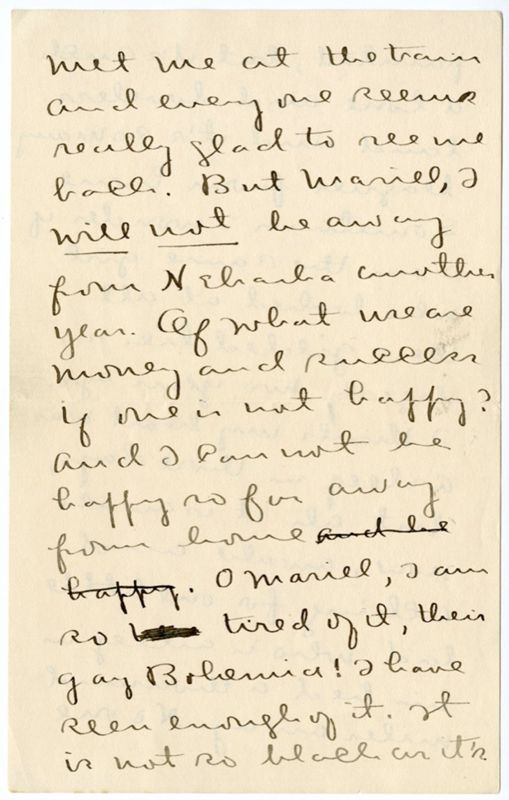 met me at the train
and every one seems
really glad to see me
back. But Mariel, I
will not be away
from Nebraska another
year. Of what use are
money and success
if one is not happy?
And I can not be
happy so far away
from home and be
happy. O Mariel, I am
so tired of it, their
gay Bohemia! I have
seen enough of it. It
is not so black as it's